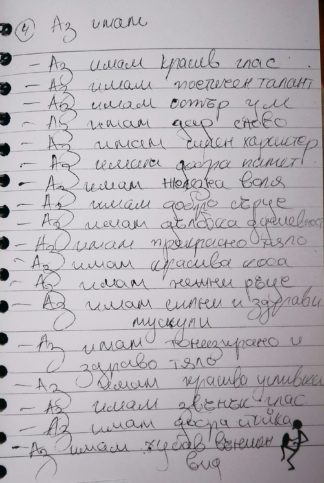 ④ Аз имам
- Аз имам красив глас
- Аз имам поетичен талант
- Аз имам остър ум
- Аз имам дар слово
- Аз имам силен характер
- Аз имам добра памет
- Аз имам желязна воля
- Аз имам добро сърце
- Аз имам дълбока душевност
- Аз имам прекрасно тяло
- Аз имам красива коса
- Аз имам нежни ръце
- Аз имам силни и здрави
мускули
- Аз имам тонизирано и
здраво тяло
- Аз имам красива усмивка
- Аз имам звънък глас
- Аз имам добра
- Аз имам хубав външен
вид